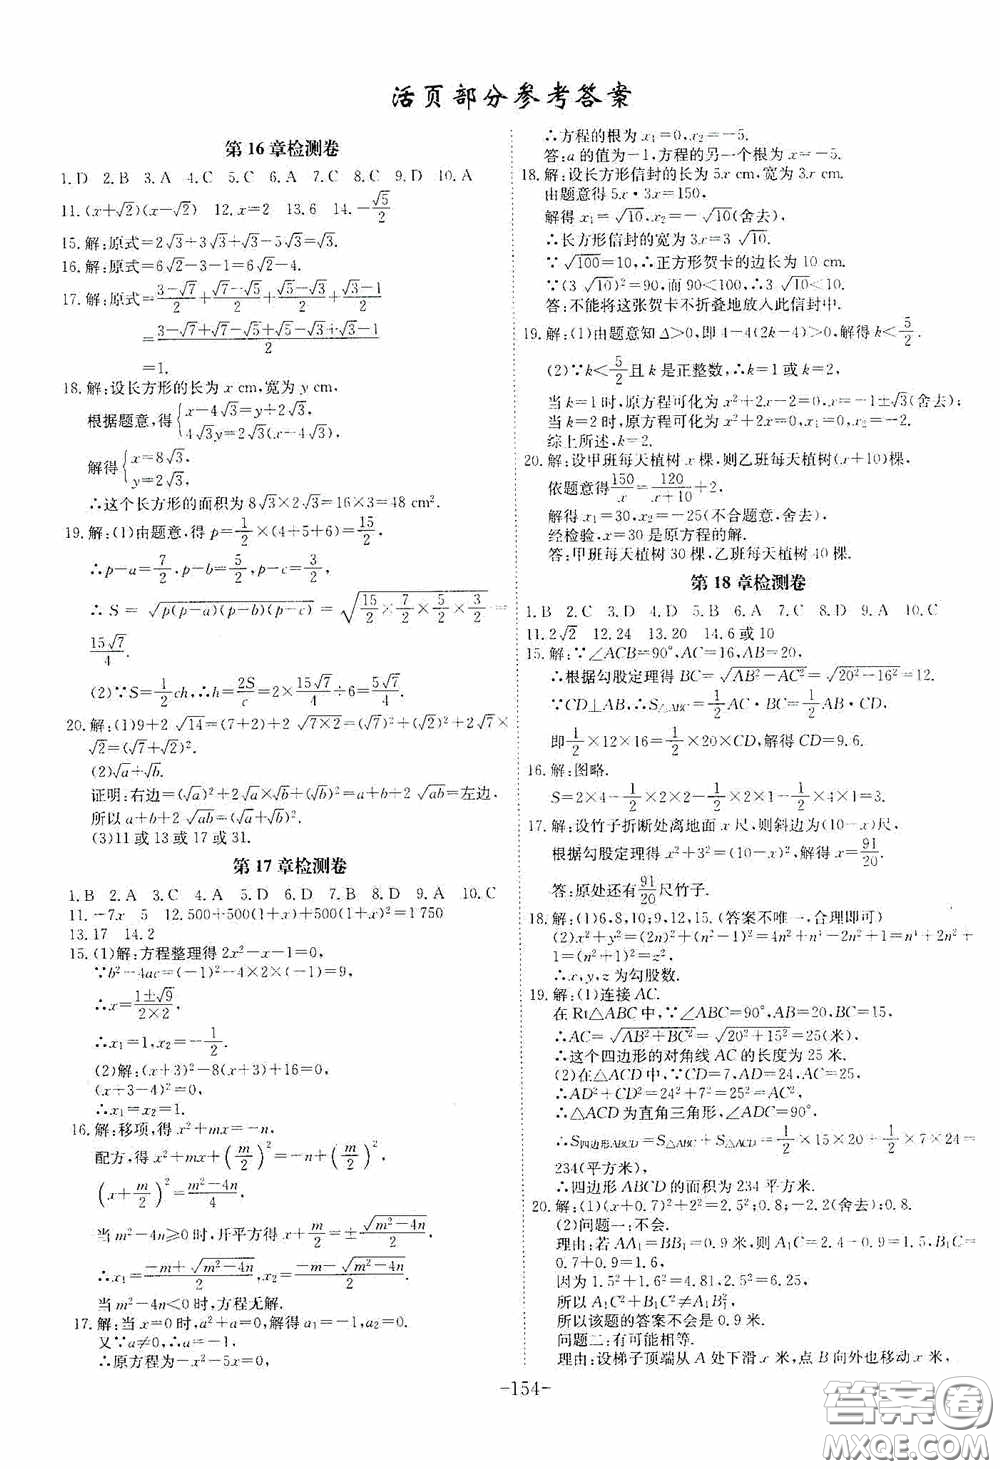 活页部分参考答案
第16章检测卷
1.D 2.B 3.A 4.C 5.C 6.A 7.C 8.C 9.D 10.A
11.(x+√2)(x-√2) 12.x=2 13.6 14.-√5/2
15.解:原式=2√3+3√3+√3-5√3=√3.
16.解:原式=6√2-3-1=6√2-4.
17.解:原式=(3-√7)/2+(√7-√5)/2+(√5-√3)/2+(√3-1)/2
=(3-√7+√7-√5+√5-√3+√3-1)/2
=1.
18.解:设长方形的长为 x cm,宽为 y cm,
根据题意,得{x-4√3=y+2√3,
4√3y=2√3(x-4√3),
解得{x=8√3,
y=2√3,
∴这个长方形的面积为 8√3×2√3=16×3=48 cm².
19.解:(1)由题意,得 p=1/2×(4+5+6)=15/2,
∴p-a=7/2,p-b=5/2,p-c=3/2,
∴S=√(p(p-a)(p-b)(p-c))=√(15/2×7/2×5/2×3/2)=
15√7/4.
(2)∵S=1/2ch,∴h=2S/c=2×15√7/4÷6=5√7/4.
20.解:(1)9+2√14=(7+2)+2√(7×2)=(√7)²+(√2)²+2√7×
√2=(√7+√2)².
(2)√a+√b.
证明:右边=(√a)²+2√a×√b+(√b)²=a+b+2√ab=左边,
所以 a+b+2√ab=(√a+√b)².
(3)11或13或17或31.
第17章检测卷
1.B 2.A 3.C 4.A 5.D 6.D 7.B 8.D 9.A 10.C
11.-7x 5 12.500+500(1+x)+500(1+x)²=1750
13.17 14.2
15.(1)解:方程整理得 2x²-x-1=0,
∵b²-4ac=(-1)²-4×2×(-1)=9,
∴x=(1±√9)/(2×2),
∴x₁=1,x₂=-1/2.
(2)解:(x+3)²-8(x+3)+16=0,
(x+3-4)²=0,
∴x₁=x₂=1.
16.解:移项,得 x²+mx=-n,
配方,得 x²+mx+(m/2)²=-n+(m/2)²,
(x+m/2)²=(m²-4n)/4,
当 m²-4n≥0 时,开平方得 x+m/2=±√(m²-4n)/2,
∴x₁=(-m+√(m²-4n))/2,x₂=(-m-√(m²-4n))/2.
当 m²-4n<0 时,方程无解.
17.解:当 x=0 时,a²+a=0,解得 a₁=-1,a₂=0.
又∵a≠0,∴a=-1,
∴原方程为-x²-5x=0,
∴方程的根为 x₁=0,x₂=-5.
答:a 的值为-1,方程的另一个根为 x=-5.
18.解:设长方形信封的长为 5x cm,宽为 3x cm.
由题意得 5x·3x=150,
解得 x₁=√10,x₂=-√10(舍去),
∴长方形信封的宽为 3x=3√10.
∵√100=10,∴正方形贺卡的边长为 10 cm.
∵(3√10)²=90,而 90<100,∴3√10<10.
答:不能将这张贺卡不折叠地放入此信封中.
19.解:(1)由题意知 Δ>0,即 4-4(2k-4)>0,解得 k<5/2.
(2)∵k<5/2且 k 是正整数,∴k=1 或 k=2,
当 k=1 时,原方程可化为 x²+2x-2=0,x=-1±√3(舍去);
当 k=2 时,原方程可化为 x²+2x=0,x₁=0,x₂=-2.
综上所述,k=2.
20.解:设甲班每天植树 x 棵,则乙班每天植树(x+10)棵,
依题意得150/x=120/(x+10)+2,
解得 x₁=30,x₂=-25(不合题意,舍去),
经检验,x=30 是原方程的解.
答:甲班每天植树 30 棵,乙班每天植树 40 棵.
第18章检测卷
1.B 2.C 3.D 4.D 5.B 6.A 7.C 8.D 9.A 10.C
11.2√2 12.24 13.20 14.6或10
15.解:∵∠ACB=90°,AC=16,AB=20,
∴根据勾股定理得 BC=√(AB²-AC²)=√(20²-16²)=12.
∵CD⊥AB,∴S△ABC=1/2AC·BC=1/2AB·CD,
即1/2×12×16=1/2×20×CD,解得 CD=9.6.
16.解:图略.
S=2×4-1/2×2×2-1/2×2×2-1/2×4×1=3.
17.解:设竹子折断处离地面 x 尺,则斜边为(10-x)尺,
根据勾股定理得 x²+3²=(10-x)²,解得 x=91/20.
答:原处还有91/20尺竹子.
18.解:(1)6,8,10;9,12,15.(答案不唯一,合理即可)
(2)x²+y²=(2n)²+(n²-1)²=4n²+n⁴-2n²+1=n⁴+2n²+
1=(n²+1)²=z²,
∴x,y,z 为勾股数.
19.解:(1)连接 AC.
在 Rt△ABC 中,∵∠ABC=90°,AB=20,BC=15,
∴AC=√(AB²+BC²)=√(20²+15²)=25(米).
∴这个四边形的对角线 AC 的长度为 25 米.
(2)在△ACD 中,∵CD=7,AD=24,AC=25,
∴AD²+CD²=24²+7²=25²=AC²,
∴△ACD 为直角三角形,∠ADC=90°.
∴S四边形ABCD=S△ABC+S△ACD=1/2×15×20+1/2×7×24=
234(平方米),
∴四边形 ABCD 的面积为 234 平方米.
20.解:(1)(x+0.7)²+2²=2.5²;0.8;-2.2(舍去);0.8.
(2)问题一:不会.
理由:若 AA₁=BB₁=0.9 米,则 A₁C=2.4-0.9=1.5,B₁C=
0.7+0.9=1.6.
因为 1.5²+1.6²=4.81,2.5²=6.25,
所以 A₁C²+B₁C²≠A₁B₁²,
所以该题的答案不会是 0.9 米.
问题二:有可能相等.
理由:设梯子顶端从 A 处下滑 x 米,点 B 向外也移动 x 米,
-154-
答案圈
MXQE.COM